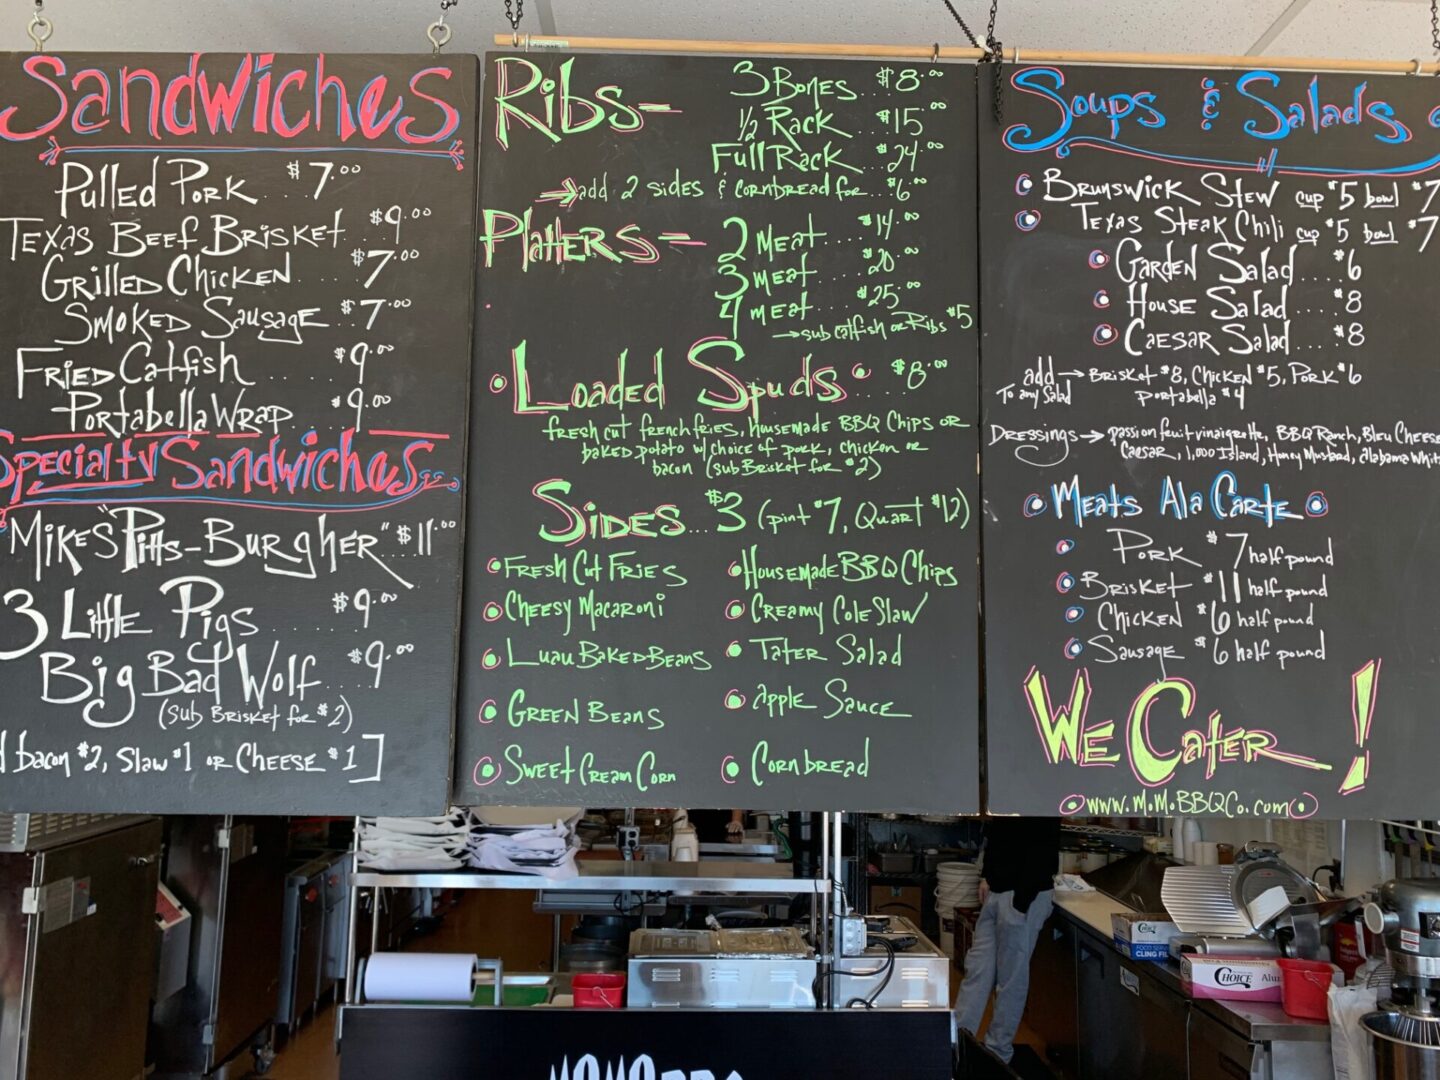 Sandwiches
Pulled Pork $7.00
Texas Beef Brisket... $9.00
Grilled Chicken..... $7.00
Smoked Sausage... $7.00
Fried Catfish..... $9.00
Portabella Wrap.... $9.00
Specialty Sandwiches
Mike's "Pitts-Burgher" $11.00
3 Little Pigs...... $9.00
Big Bad Wolf.... $9.00
(sub Brisket for $2)
bacon $2, Slaw $1 or Cheese $1]
Ribs-
3 Bones... $8.00
1/2 Rack... $15.00
Full Rack.... $24.00
→ add 2 sides & cornbread for... $6.00
Platters-
2 meat.... $14.00
3 meat.... $20.00
4 meat.... $25.00
→ sub catfish or Ribs $5
• Loaded Spuds • $8.00
fresh cut french fries, housemade BBQ Chips or
baked potato w/ choice of pork, chicken or
bacon (sub Brisket for $2)
Sides... $3 (pint $7, Quart $12)
• Fresh Cut Fries
• Cheesy Macaroni
• Luau Baked Beans
• Green Beans
• Sweet Cream Corn
• Housemade BBQ Chips
• Creamy Cole Slaw
• Tater Salad
• Apple Sauce
• Cornbread
Soups & Salads
• Brunswick Stew cup $5 bowl $7
• Texas Steak Chili cup $5 bowl $7
• Garden Salad.... $6
• House Salad.... $8
• Caesar Salad.... $8
add To any Salad → Brisket $8, Chicken $5, Pork $6
Portabella $4
Dressings → passion fruit vinaigrette, BBQ Ranch, Bleu Cheese
Caesar, 1,000 Island, Honey Mustard, Alabama Whit
• Meats Ala Carte •
• Pork $7 half pound
• Brisket $11 half pound
• Chicken $6 half pound
• Sausage $6 half pound
We Cater!
• www.MoMoBBQCo.com •
CHOICE
FOOD SERVICE
CLING FIL
CHOICE Alu